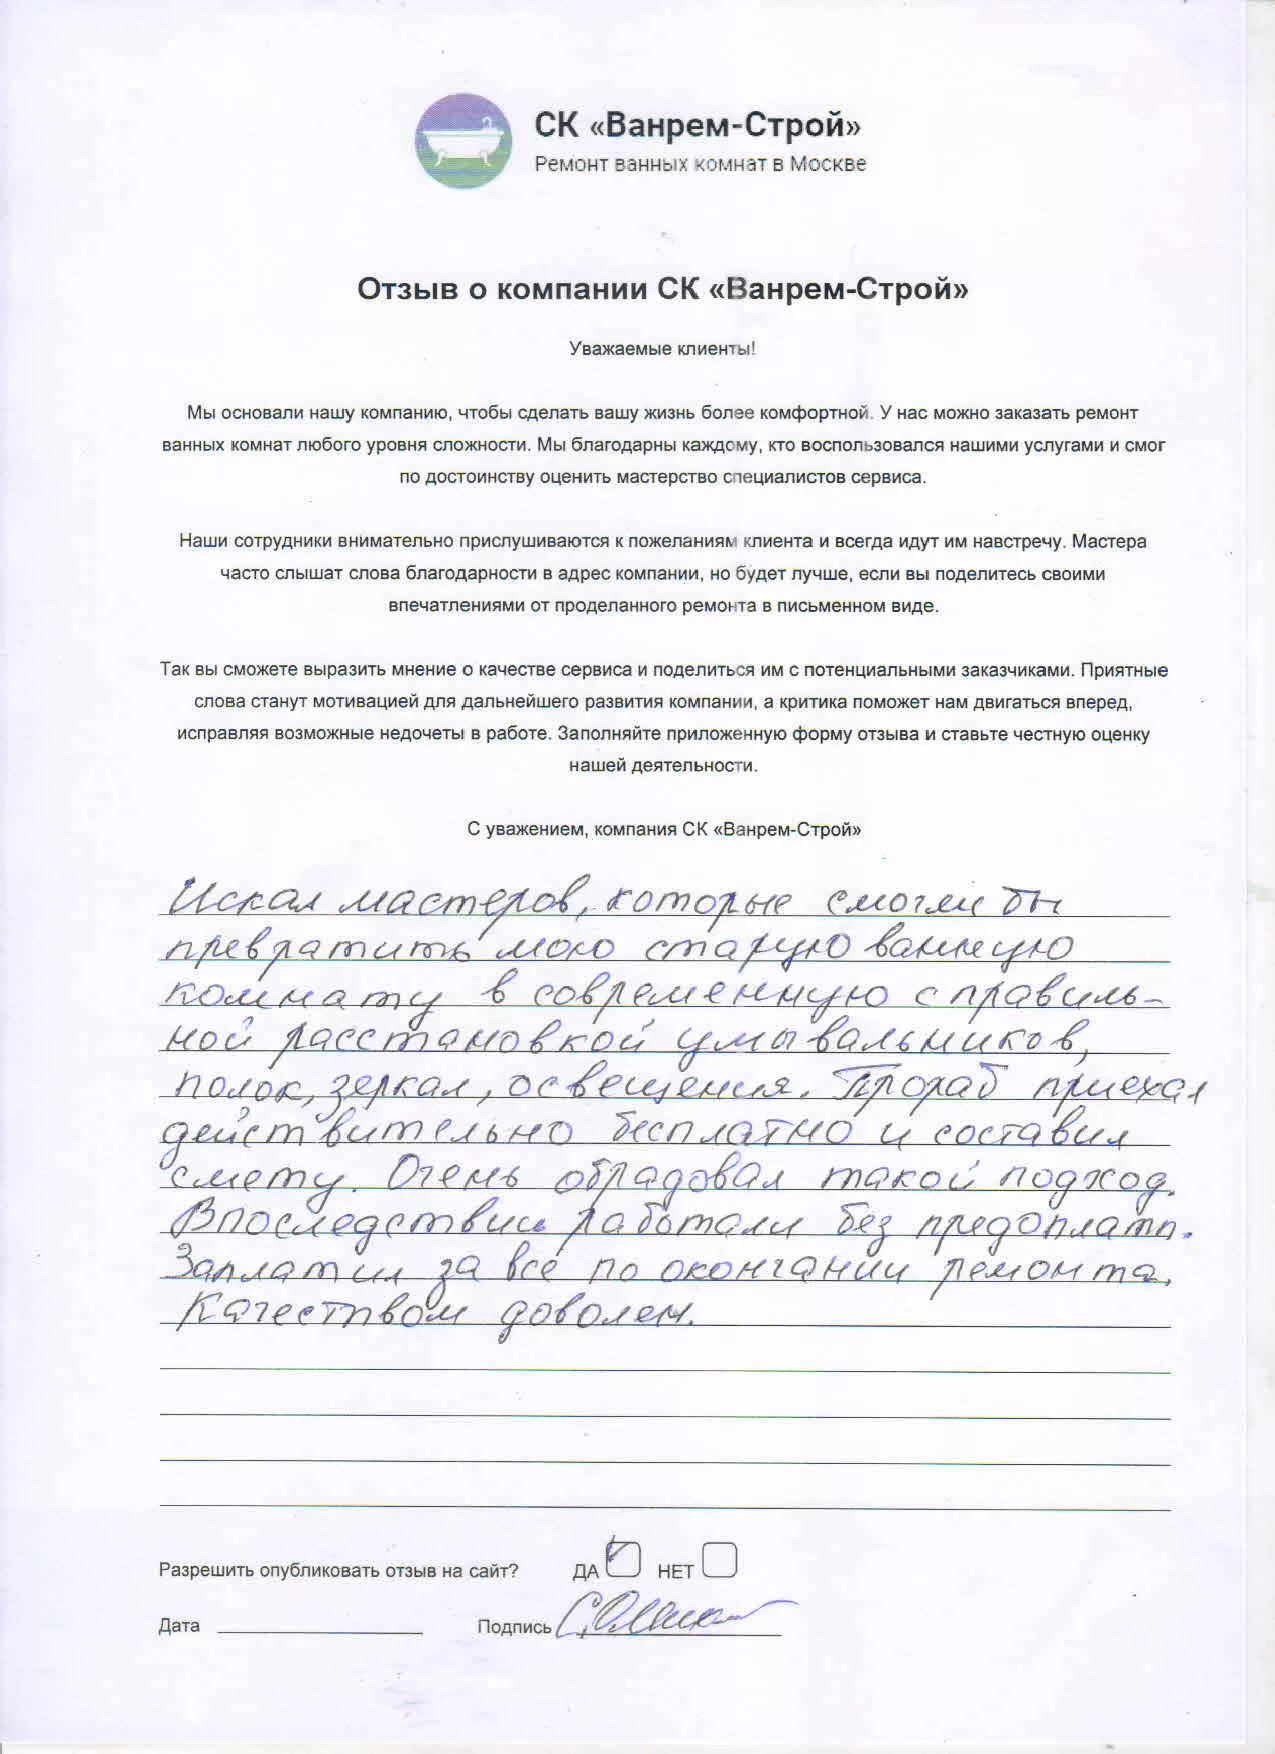 СК «Ванрем-Строй»
Ремонт ванных комнат в Москве
Отзыв о компании СК «Ванрем-Строй»
Уважаемые клиенты!
Мы основали нашу компанию, чтобы сделать вашу жизнь более комфортной. У нас можно заказать ремонт
ванных комнат любого уровня сложности. Мы благодарны каждому, кто воспользовался нашими услугами и смог
по достоинству оценить мастерство специалистов сервиса.
Наши сотрудники внимательно прислушиваются к пожеланиям клиента и всегда идут им навстречу. Мастера
часто слышат слова благодарности в адрес компании, но будет лучше, если вы поделитесь своими
впечатлениями от проделанного ремонта в письменном виде.
Так вы сможете выразить мнение о качестве сервиса и поделиться им с потенциальными заказчиками. Приятные
слова станут мотивацией для дальнейшего развития компании, а критика поможет нам двигаться вперед,
исправляя возможные недочеты в работе. Заполняйте приложенную форму отзыва и ставьте честную оценку
нашей деятельности.
С уважением, компания СК «Ванрем-Строй»
Искал мастеров, которые смогли бы
превратить мою старую ванную
комнату в современную с правиль-
ной расстановкой умывальников,
полок, зеркал, освещения. Прораб приехал
действительно бесплатно и составил
смету. Очень обрадовал такой подход.
Впоследствии работали без предоплаты.
Заплатил за все по окончании ремонта.
Качеством доволен.
Разрешить опубликовать отзыв на сайт? ДА НЕТ
Дата Подпись